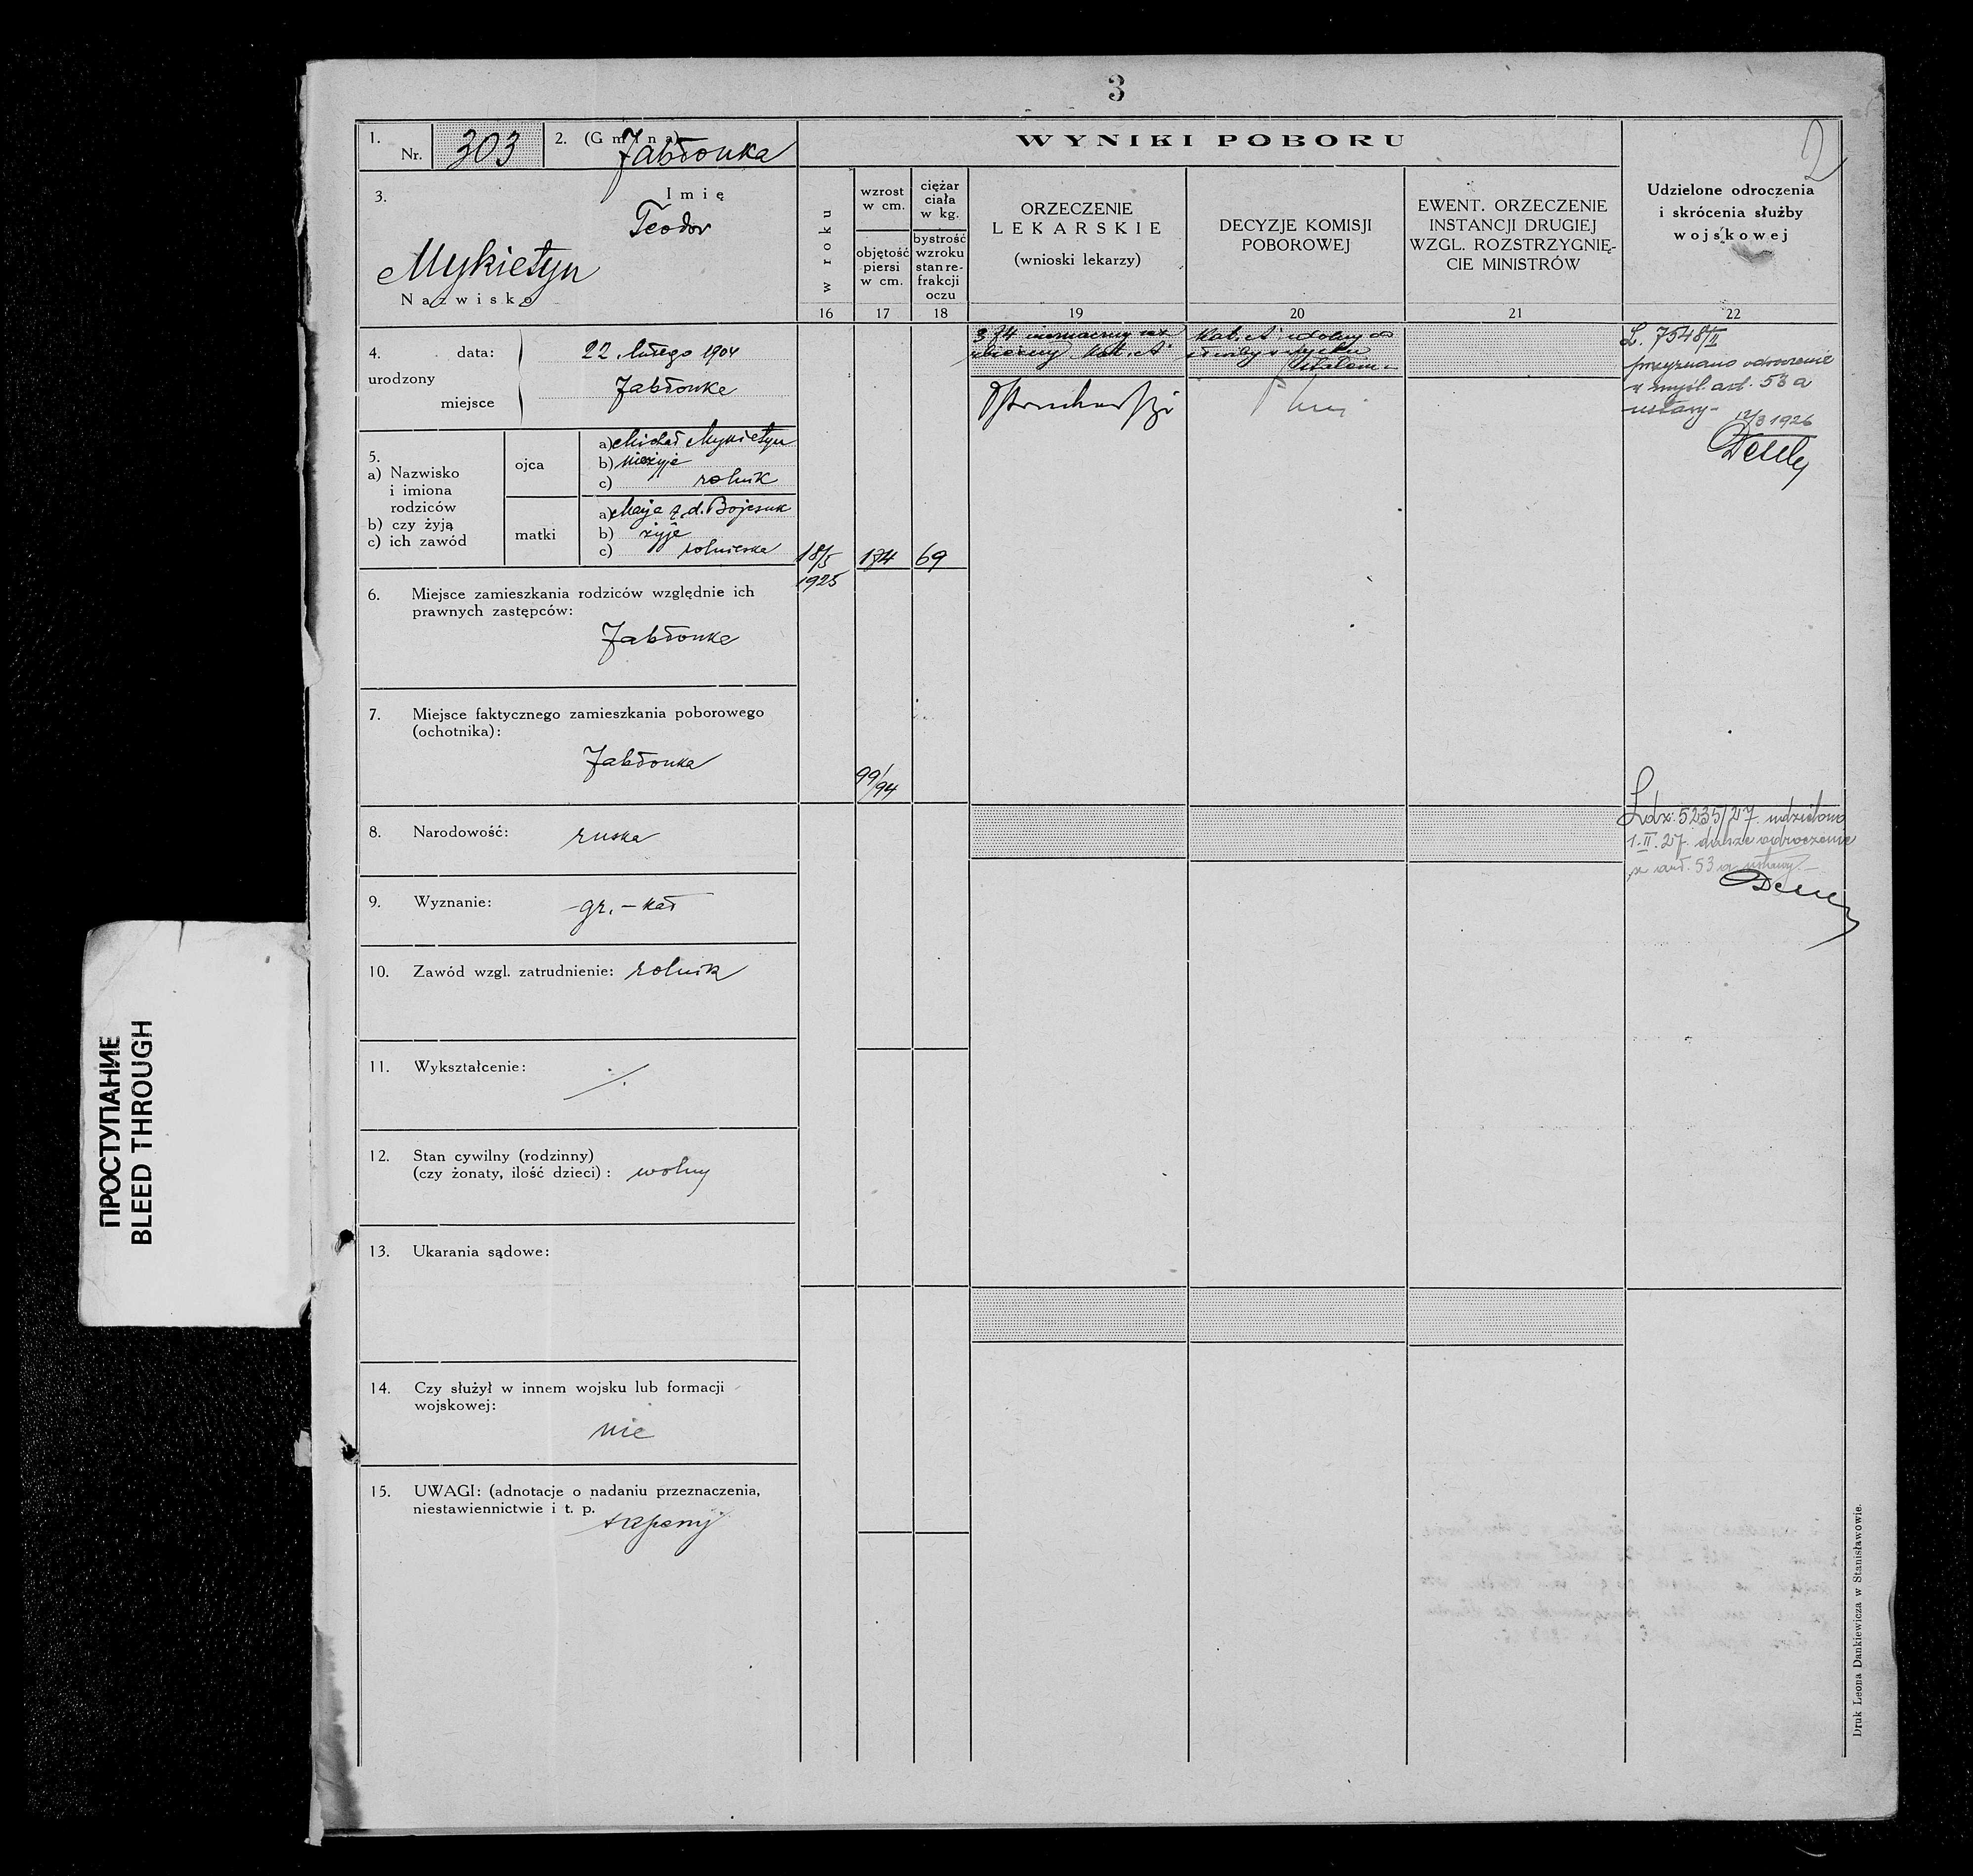 3
2
1. Nr. 303 2. (Gmina) Jabłonka
3. Imię
Teodor
Mykietyn
Nazwisko
4. urodzony
data: 22 lutego 1904
miejsce Jabłonka
5.
a) Nazwisko
i imiona
rodziców
b) czy żyją
c) ich zawód
ojca
a) Michał Mykietyn
b) nieżyje
c) rolnik
matki
a) z d. Bojczuk
b) żyje
c) rolniczka
6. Miejsce zamieszkania rodziców względnie ich
prawnych zastępców:
Jabłonka
7. Miejsce faktycznego zamieszkania poborowego
(ochotnika):
Jabłonka
8. Narodowość: ruska
9. Wyznanie: gr.-kat
10. Zawód wzgl. zatrudnienie: rolnik
11. Wykształcenie: ·/.
12. Stan cywilny (rodzinny)
(czy żonaty, ilość dzieci): wolny
13. Ukarania sądowe:
14. Czy służył w innem wojsku lub formacji
wojskowej:
nie
15. UWAGI: (adnotacje o nadaniu przeznaczenia,
niestawiennictwie i t. p.
WYNIKI POBORU
w roku
16
wzrost
w cm.
objętość
piersi
w cm.
17
ciężar
ciała
w kg.
bystrość
wzroku
stan re-
frakcji
oczu
18
ORZECZENIE
LEKARSKIE
(wnioski lekarzy)
19
DECYZJE KOMISJI
POBOROWEJ
20
EWENT. ORZECZENIE
INSTANCJI DRUGIEJ
WZGL. ROZSTRZYGNIĘ-
CIE MINISTRÓW
21
Udzielone odroczenia
i skrócenia służby
wojskowej
22
18/5
1925
174
69
99/94
Kat. A
Kat. A zdolny do
służby
L. 7548/II
przyznano odroczenie
w myśl. art. 53 a
ustawy-
12/3 1926
Ldz. 5235/27. udzielono
1.II.27. dalsze odroczenie
z art. 53 a ustawy.-
Druk Leona Dankiewicza w Stanisławowie.
ПРОСТУПАНИЕ
BLEED THROUGH